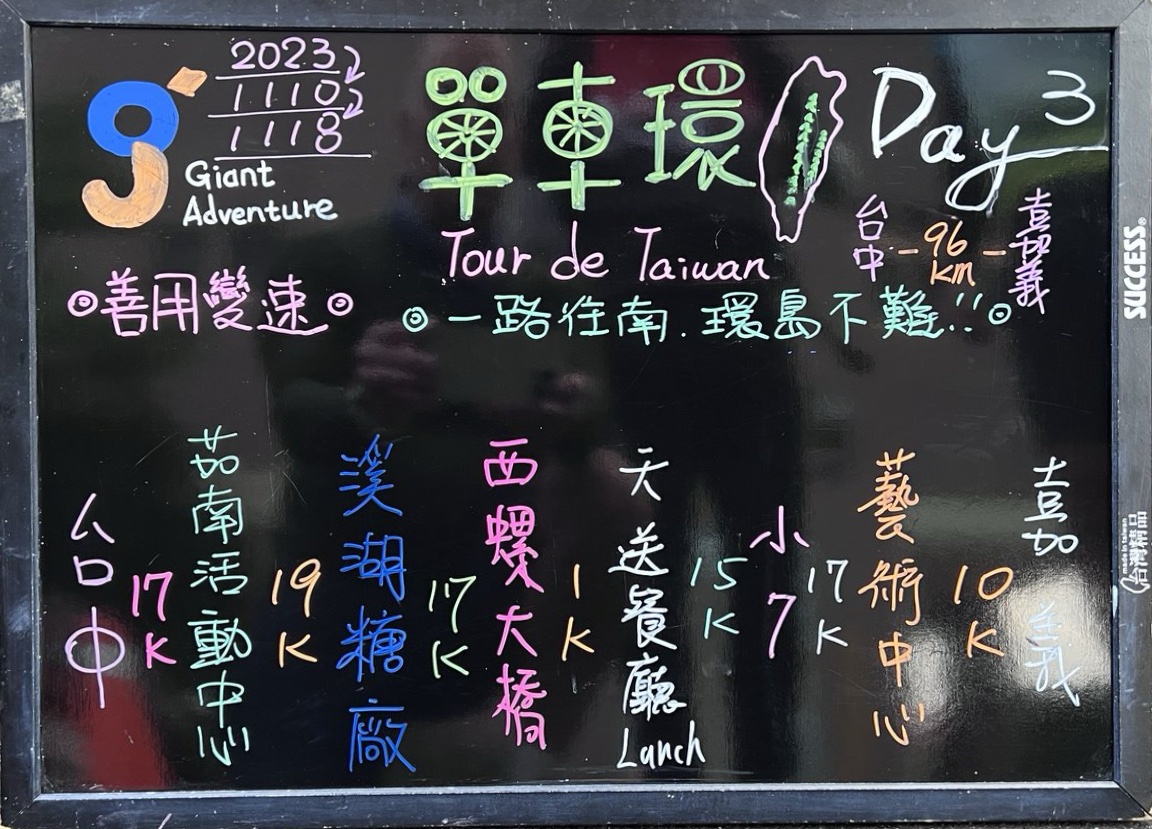 2023
1110
1118
Giant
Adventure
單車環
Day 3
Tour de Taiwan
台中-96km-嘉義
善用變速
一路往南.環島不難!!
台中
17K
茄南活動中心
19K
溪湖糖廠
17K
西螺大橋
1K
天送餐廳
Lunch
15K
小7
17K
藝術中心
10K
嘉義
SUCCESS
made in taiwan
台灣精品